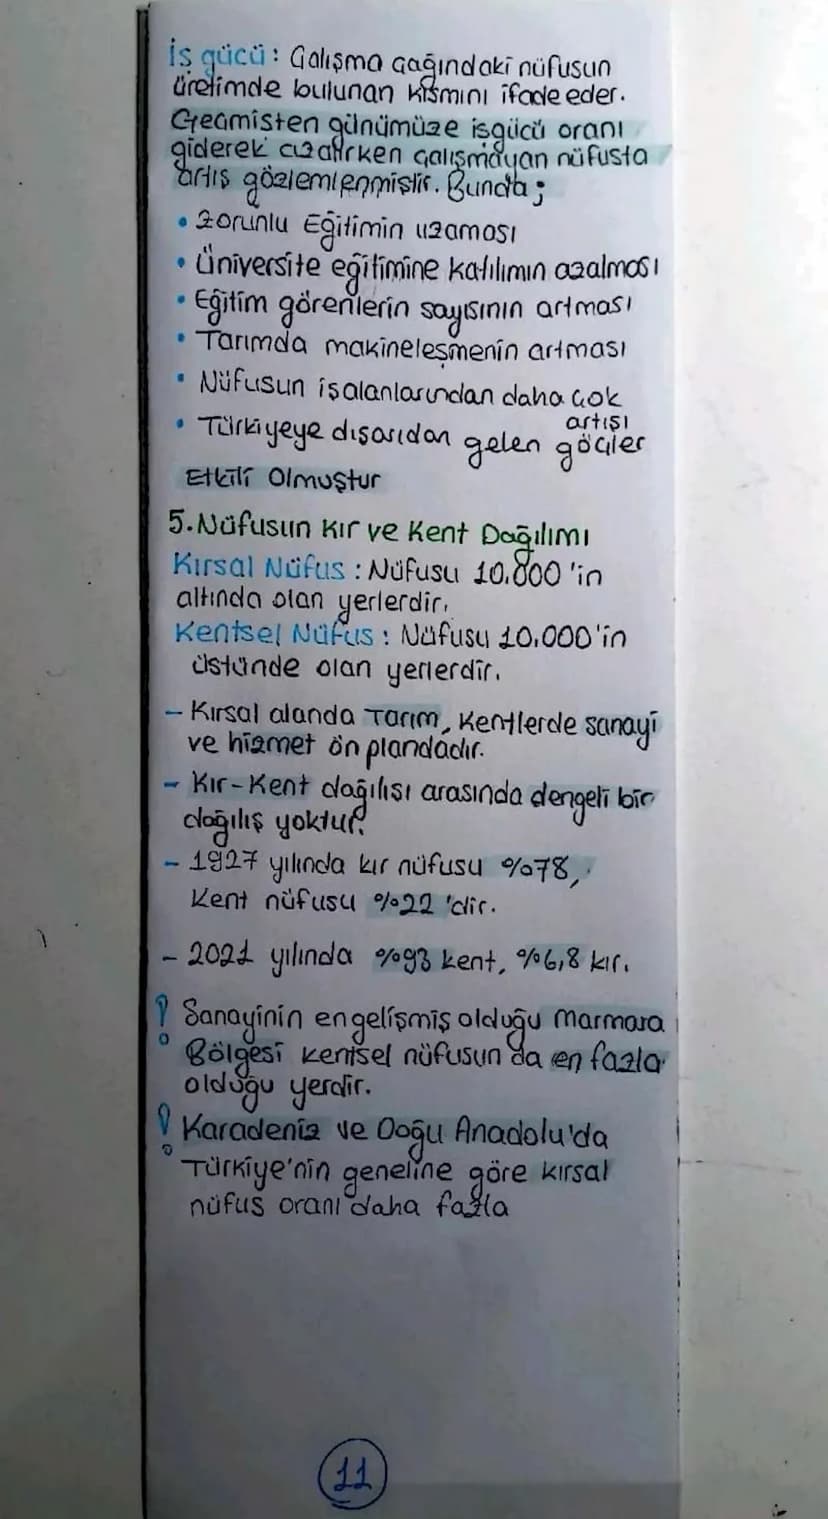 İş gücü: Çalışma çağındaki nüfusun
üretimde bulunan kısmını ifade eder.
Geçmişten günümüze işgücü oranı
giderek azalırken çalışmayan nüfusta
artış gözlemlenmiştir. Bunda;
• Zorunlu Eğitimin uzaması
• Üniversite eğitimine katılımın azalması
• Eğitim görenlerin sayısının artması
• Tarımda makineleşmenin artması
• Nüfusun işalanlarından daha çok
artışı
• Türkiyeye dışarıdan gelen göçler
Etkili Olmuştur
5. Nüfusun Kır ve Kent Dağılımı
Kırsal Nüfus: Nüfusu 10.000'in
altında olan yerlerdir.
Kentsel Nüfus: Nüfusu 10.000'in
üstünde olan yerlerdir.
- Kırsal alanda Tarım, Kentlerde sanayi
ve hizmet ön plandadır.
- Kır-Kent dağılışı arasında dengeli bir
dağılış yoktur.
- 1927 yılında kır nüfusu %78,
Kent nüfusu %22'dir.
- 2021 yılında %93 kent, %6,8 kır.
! Sanayinin en gelişmiş olduğu Marmara
Bölgesi kentsel nüfusun da en fazla
olduğu yerdir.
! Karadeniz ve Doğu Anadolu'da
Türkiye'nin geneline göre kırsal
nüfus oranı daha fazla
11